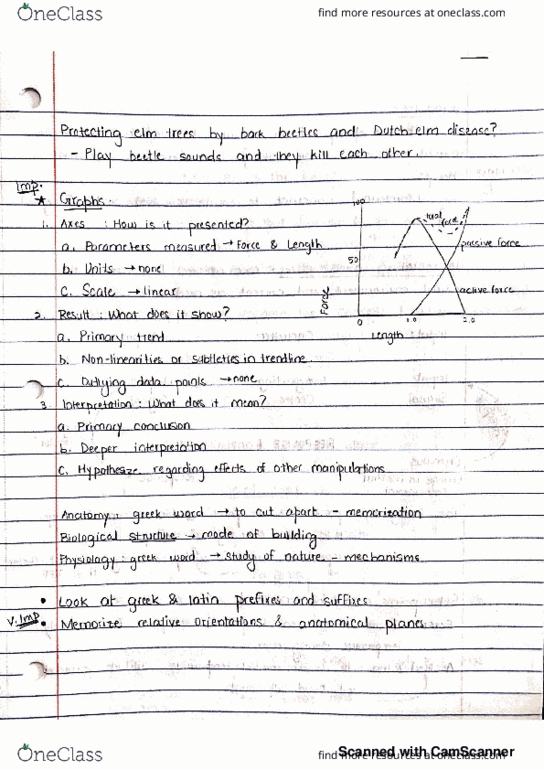 OneClass
find more resources at oneclass.com
Protecting elm trees by bark beetles and Dutch elm disease?
- Play beetle sounds and they kill each other.
Imp.
★ Graphs.
1. Axes : How is it presented?
a. Parameters measured → Force & Length
b. Units → none
c. Scale → linear
2. Result : What does it show?
a. Primary trend
b. Non-linearities or subtleties in trendline
c. Outlying data points → none
3. Interpretation : What does it mean?
a. Primary conclusion
b. Deeper interpretation
c. Hypothesize regarding effects of other manipulations
100
50
0
1.0
2.0
Force
Length
total force
passive force
active force
Anatomy : greek word → to cut apart - memorization
Biological structure → mode of building
Physiology : greek word → study of nature - mechanisms
• Look at greek & latin prefixes and suffixes
V. Imp • Memorize relative orientations & anatomical planes
OneClass
find more resources at oneclass.com
Scanned with CamScanner